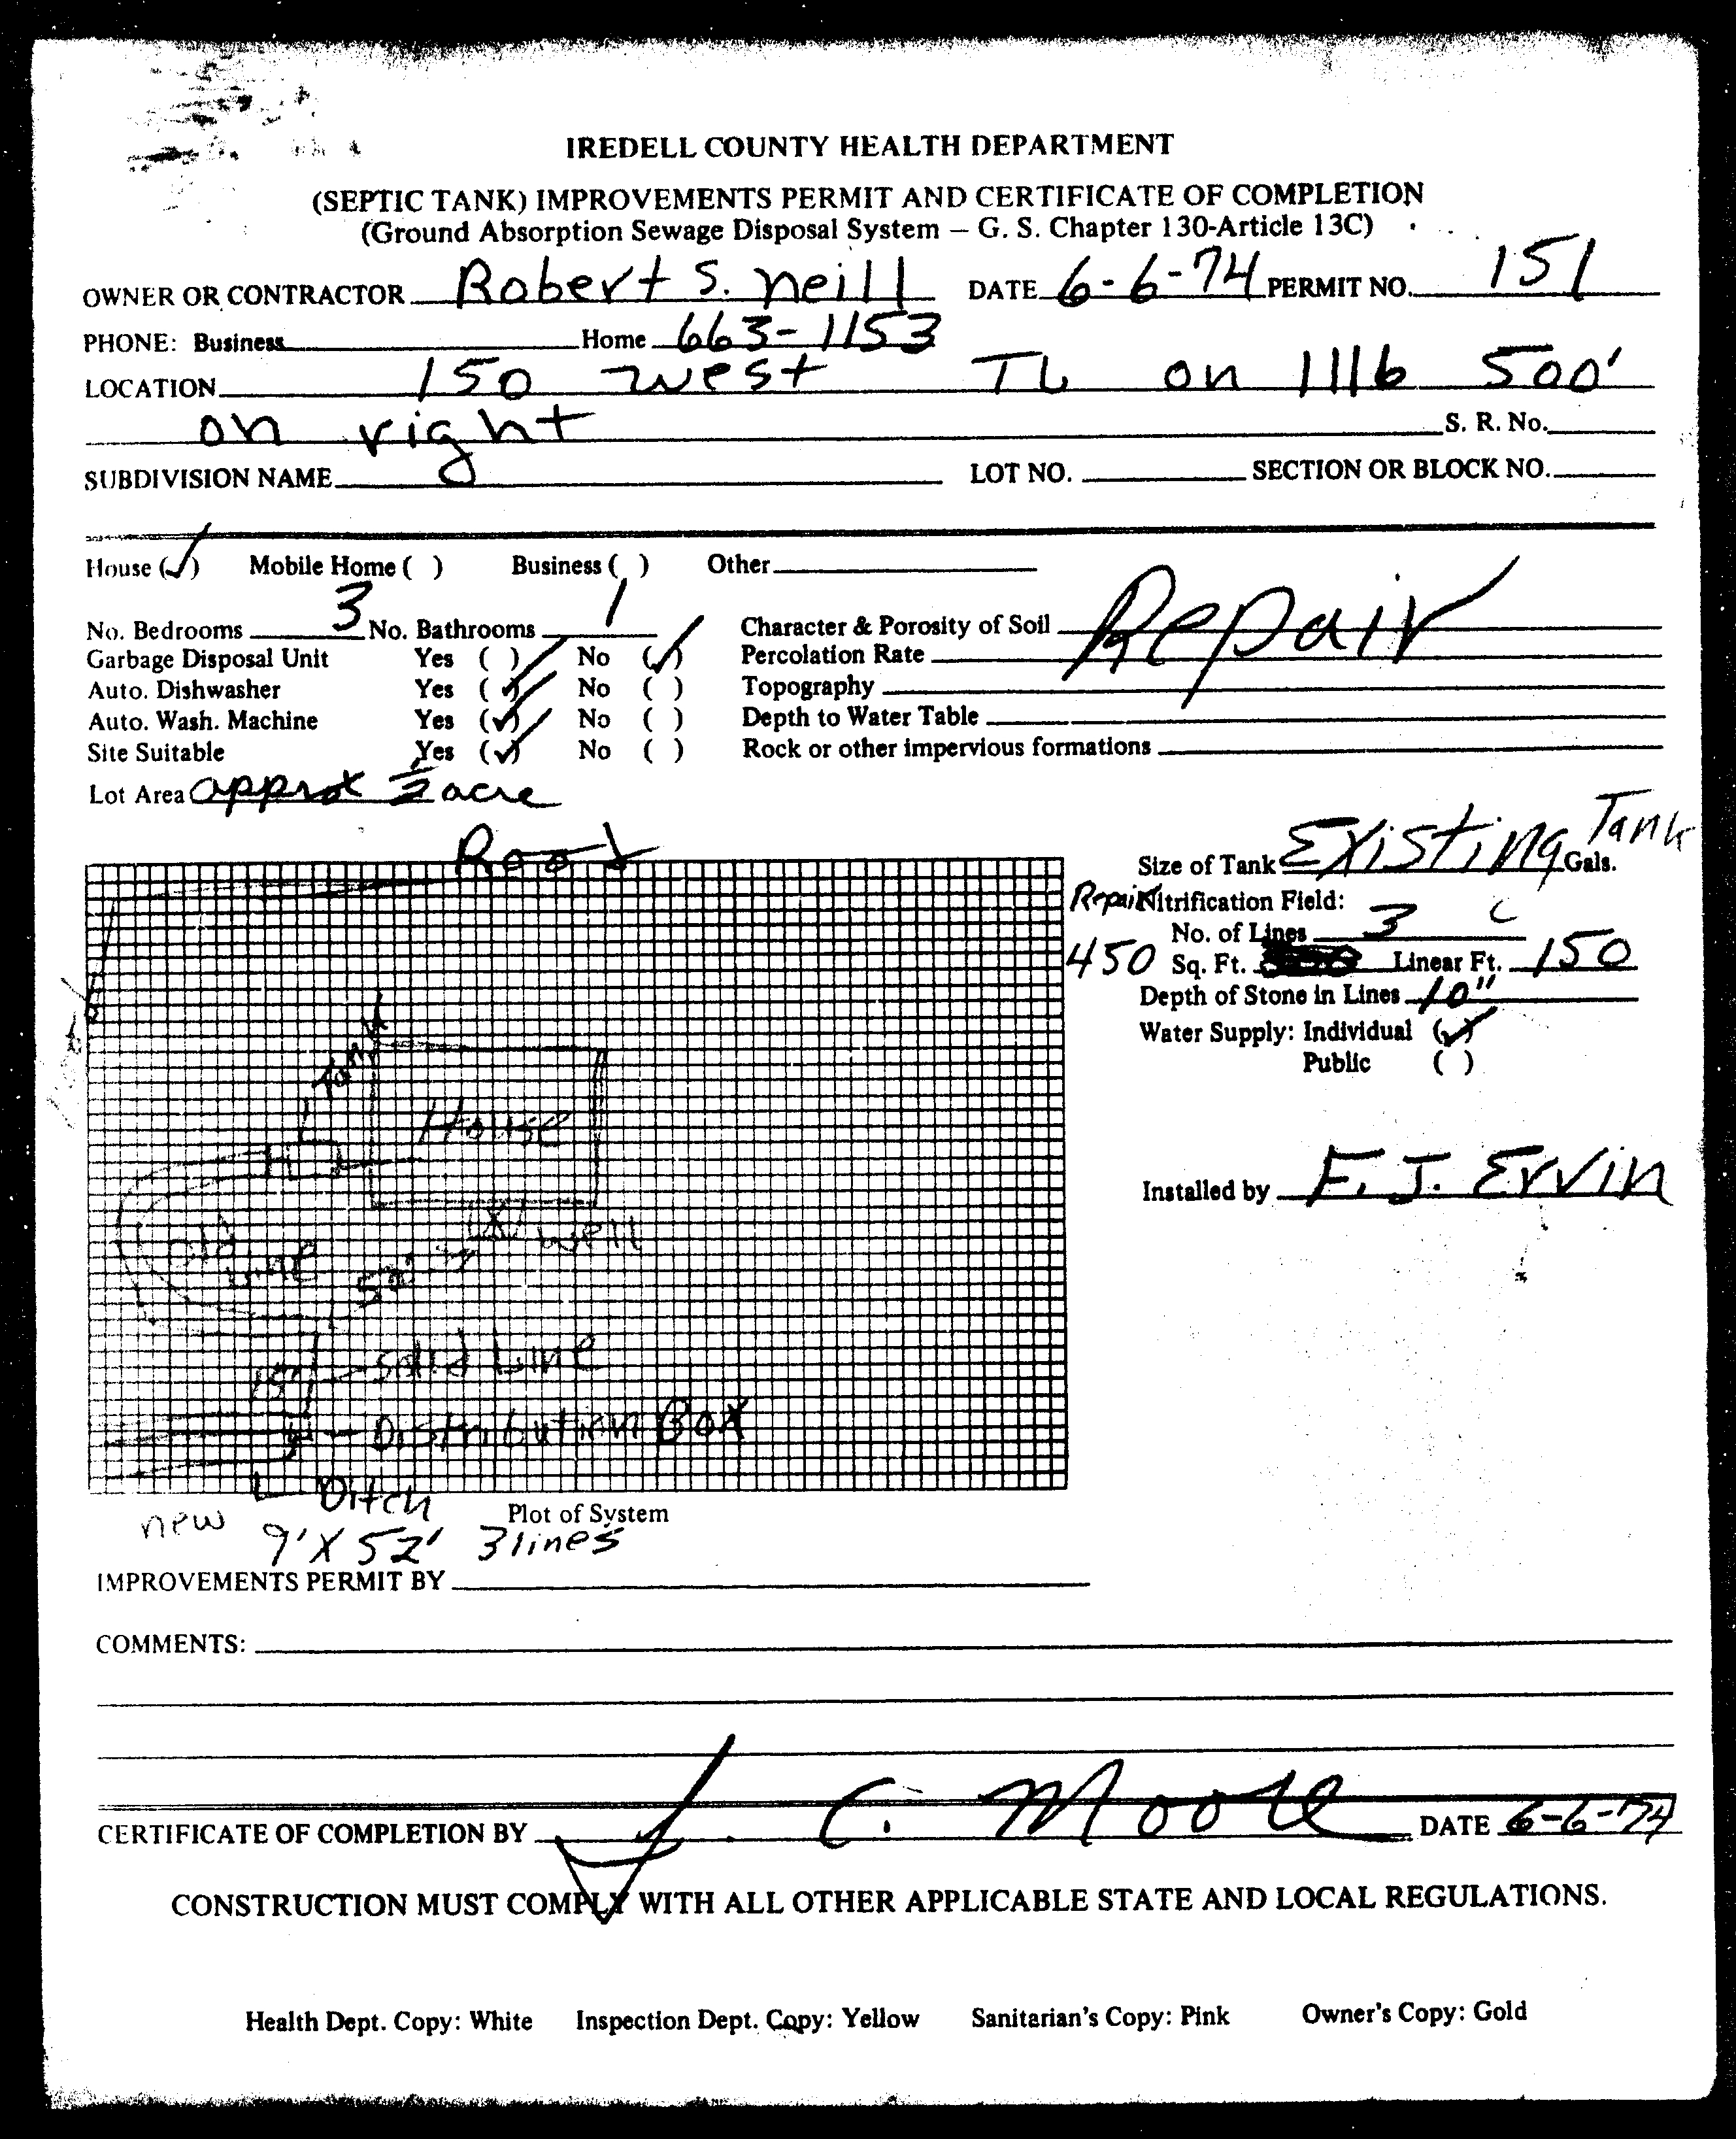 IREDELL COUNTY HEALTH DEPARTMENT
(SEPTIC TANK) IMPROVEMENTS PERMIT AND CERTIFICATE OF COMPLETION
(Ground Absorption Sewage Disposal System – G. S. Chapter 130-Article 13C)
OWNER OR CONTRACTOR Robert S. Neill DATE 6-6-74 PERMIT NO. 151
PHONE: Business Home 663-1153
LOCATION 150 West TL on 1116 500'
on right S. R. No.
SUBDIVISION NAME LOT NO. SECTION OR BLOCK NO.
House (✓) Mobile Home ( ) Business ( ) Other
No. Bedrooms 3 No. Bathrooms 1 Character & Porosity of Soil Repair
Garbage Disposal Unit Yes ( ) No (✓) Percolation Rate
Auto. Dishwasher Yes (✓) No ( ) Topography
Auto. Wash. Machine Yes (✓) No ( ) Depth to Water Table
Site Suitable Yes (✓) No ( ) Rock or other impervious formations
Lot Area approx ½ acre
Road
Size of Tank Existing Tank Gals.
Repair Nitrification Field:
No. of Lines 3
450 Sq. Ft. Linear Ft. 150
Depth of Stone in Lines 10"
Water Supply: Individual (✓)
Public ( )
Tank
House
Installed by F. J. Ervin
Well
old
Line
Solid Line
Distribution Box
Ditch
Plot of System
new 9' X 52' 3 lines
IMPROVEMENTS PERMIT BY
COMMENTS:
CERTIFICATE OF COMPLETION BY J. C. Moore DATE 6-6-74
CONSTRUCTION MUST COMPLY WITH ALL OTHER APPLICABLE STATE AND LOCAL REGULATIONS.
Health Dept. Copy: White Inspection Dept. Copy: Yellow Sanitarian's Copy: Pink Owner's Copy: Gold